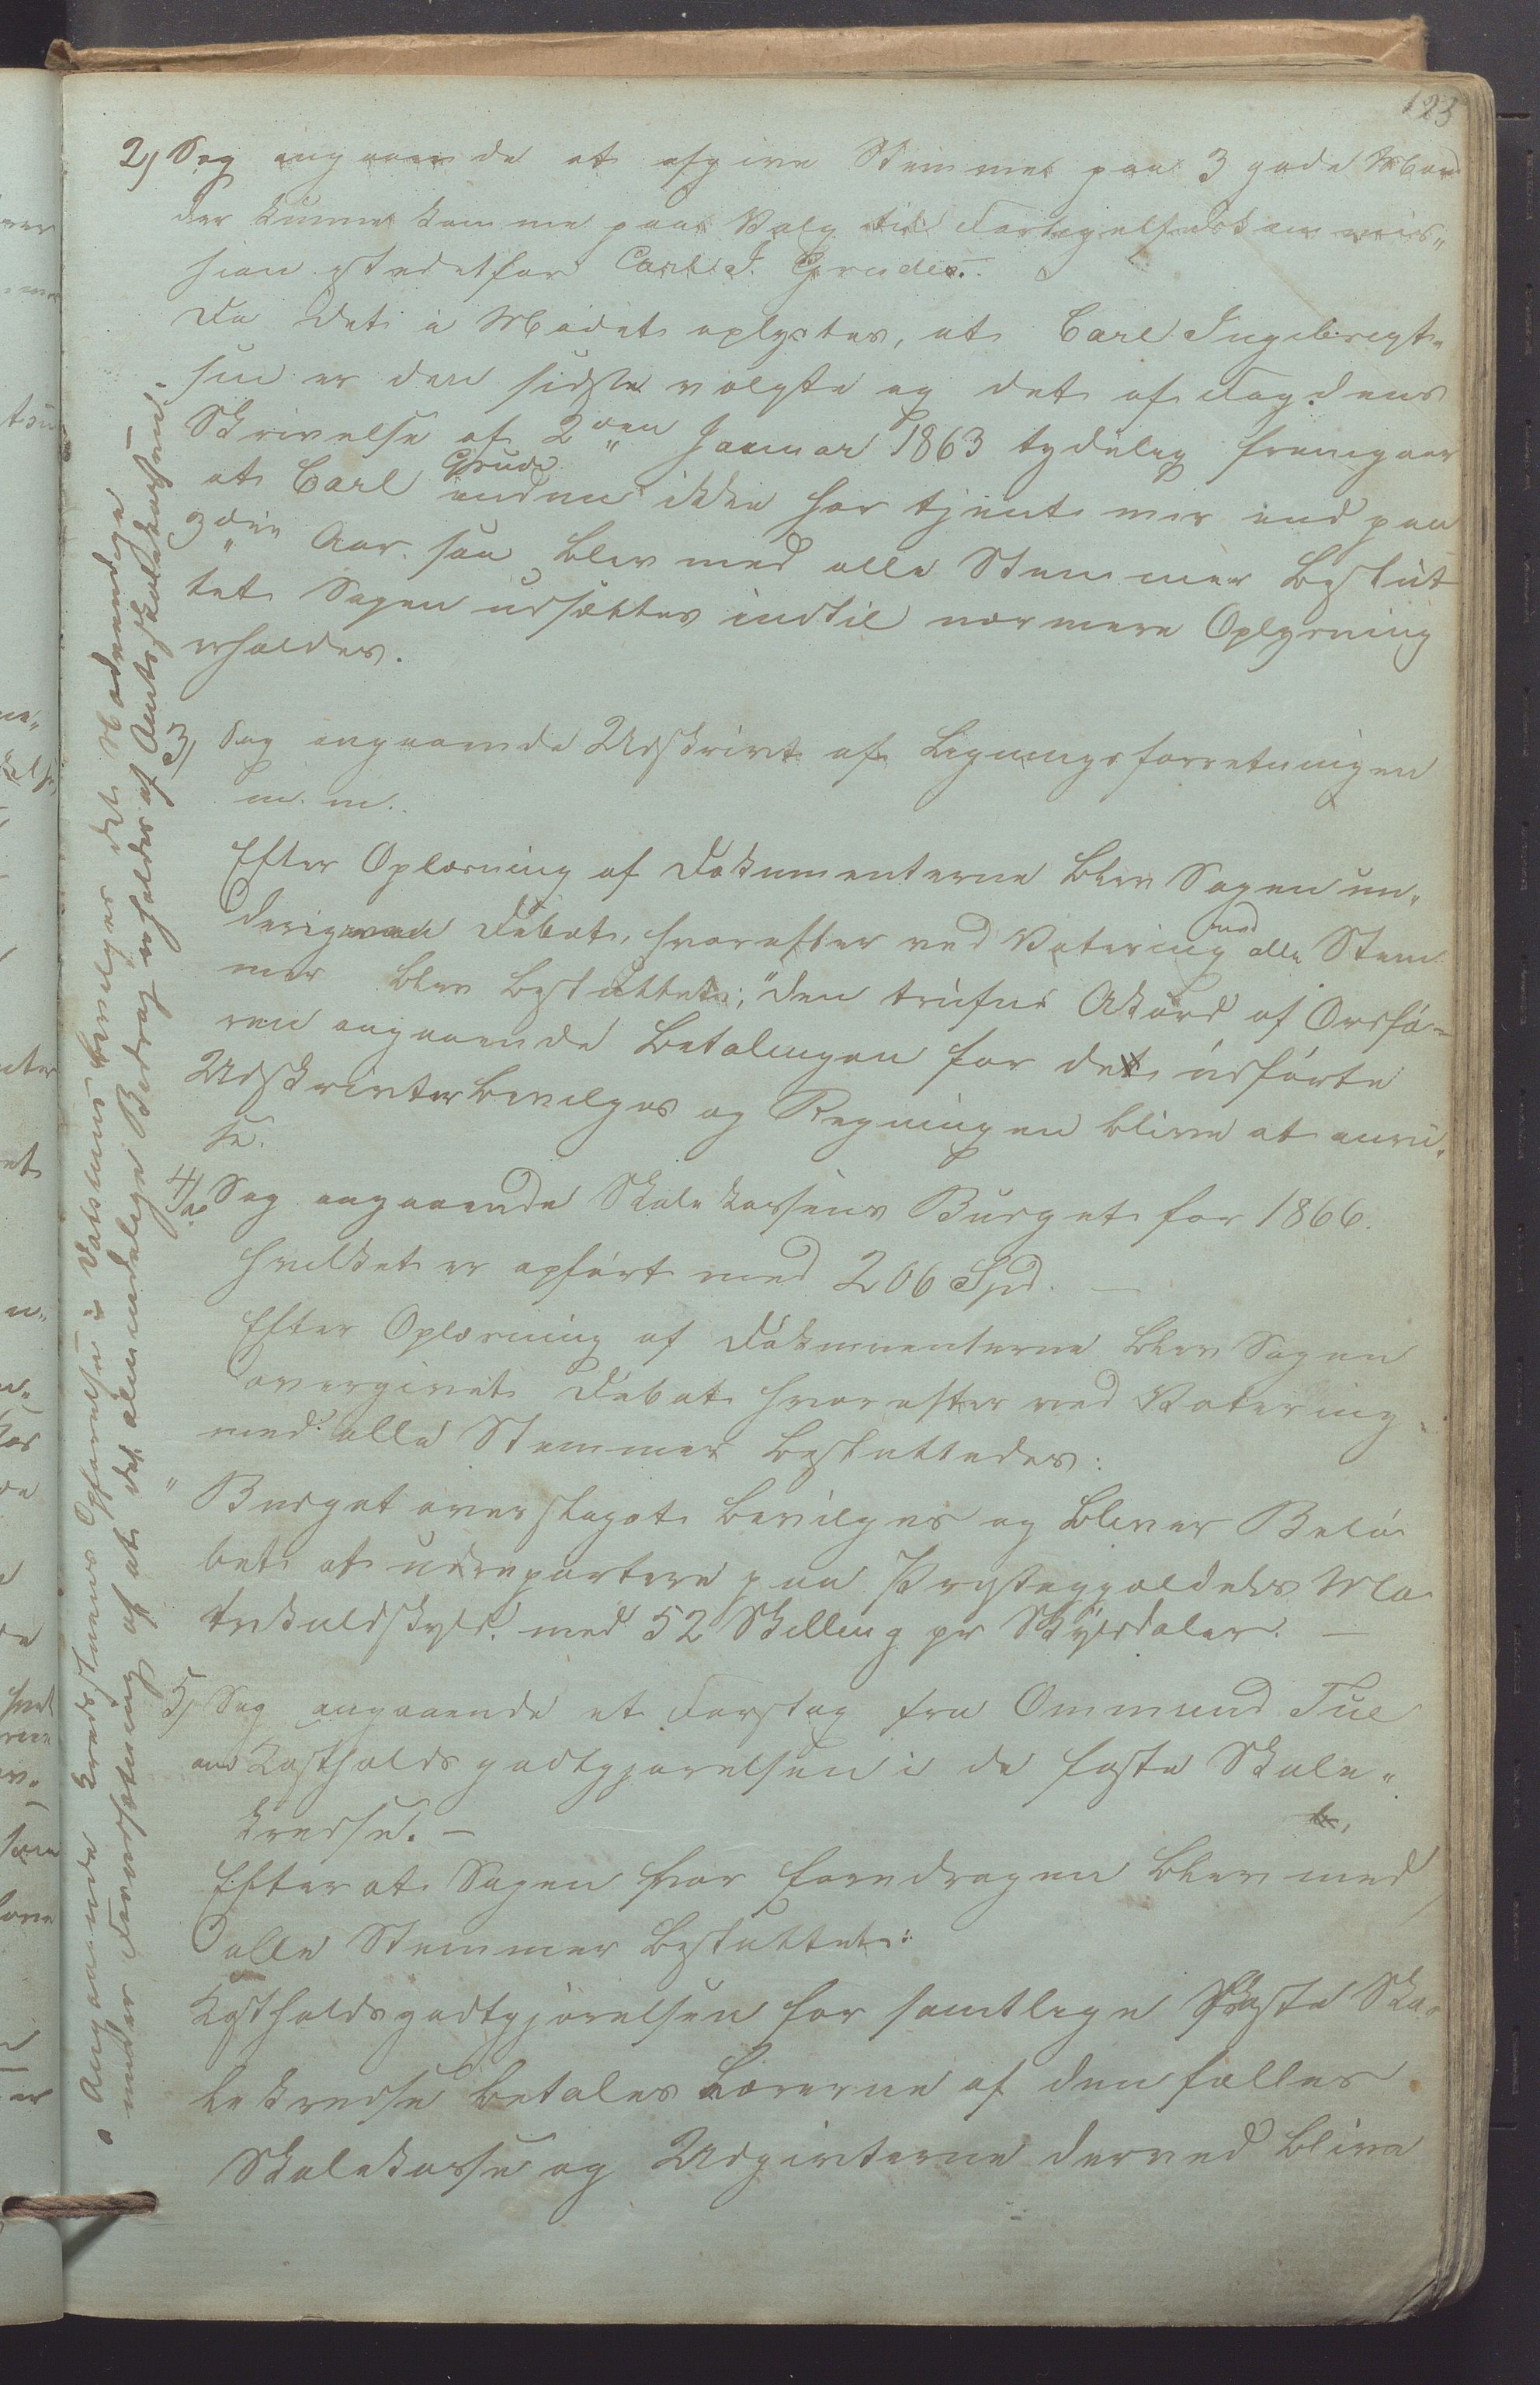 123
2) Sag angaaende at afgive Stemmer paa 3 gode Mænd
der kunne komme paa Valg til Forligelseskommis„
sion istedetfor Carl I. Grude.
Da det i Mødet oplystes, at Carl Ingebrigt„
sen er den sidste valgte og det af Fogdens
Skrivelse af 2den Januar 1863 tydelig fremgaar
at Carl Grude endnu ikke har tjent mer end paa
3die Aar. saa blev med alle Stemmer beslut
tet Sagen udsættes indtil nærmere Oplysning
erholdes.
3) Sag angaaende Udskrivt af Ligningsforretningen
m. m.
Efter Oplæsning af Dokumenterne blev Sagen un„
dergiven Debat, hvorefter ved Votering med alle Stem
mer blev besluttet; "den trufne Akord af Ordfø-
ren angaaende Betalingen for det udførte
Udskrivter bevilges og Regningen blive at anvi„
se.
4/ Sag angaaende Skolekassens Budget for 1866.
hvilket er opført med 206 Spd. —
Efter Oplæsning af Dokumenterne blev Sagen
overgivet Debat hvorefter ved Votering
med alle Stemmer besluttedes:
" Budget overslaget bevilges og bliver Belø
bet at udrepartere paa Præstegjældets Ma
trikulskyld. med 52 Skilling pr Skylddaler. —
5) Sag angaaende et Forslag fra Ommund Tue
om Kostholdsgodtgjørelsen i de faste Skole„
kredse. —
Efter at Sagen var foredragen blev med
alle Stemmer besluttet:
Kostholdsgodtgjørelsen for samtlige faste Sko„
lekredse betales Lærerne af den fælles
Skolekasse og Udgivterne derved blive
Angaaende Kredsturens Opførelse i Voldsund bevilges det Nødvendige
under Forudsætning af at det almindelige Bidrag erholdes af Amtsskolekassen. —